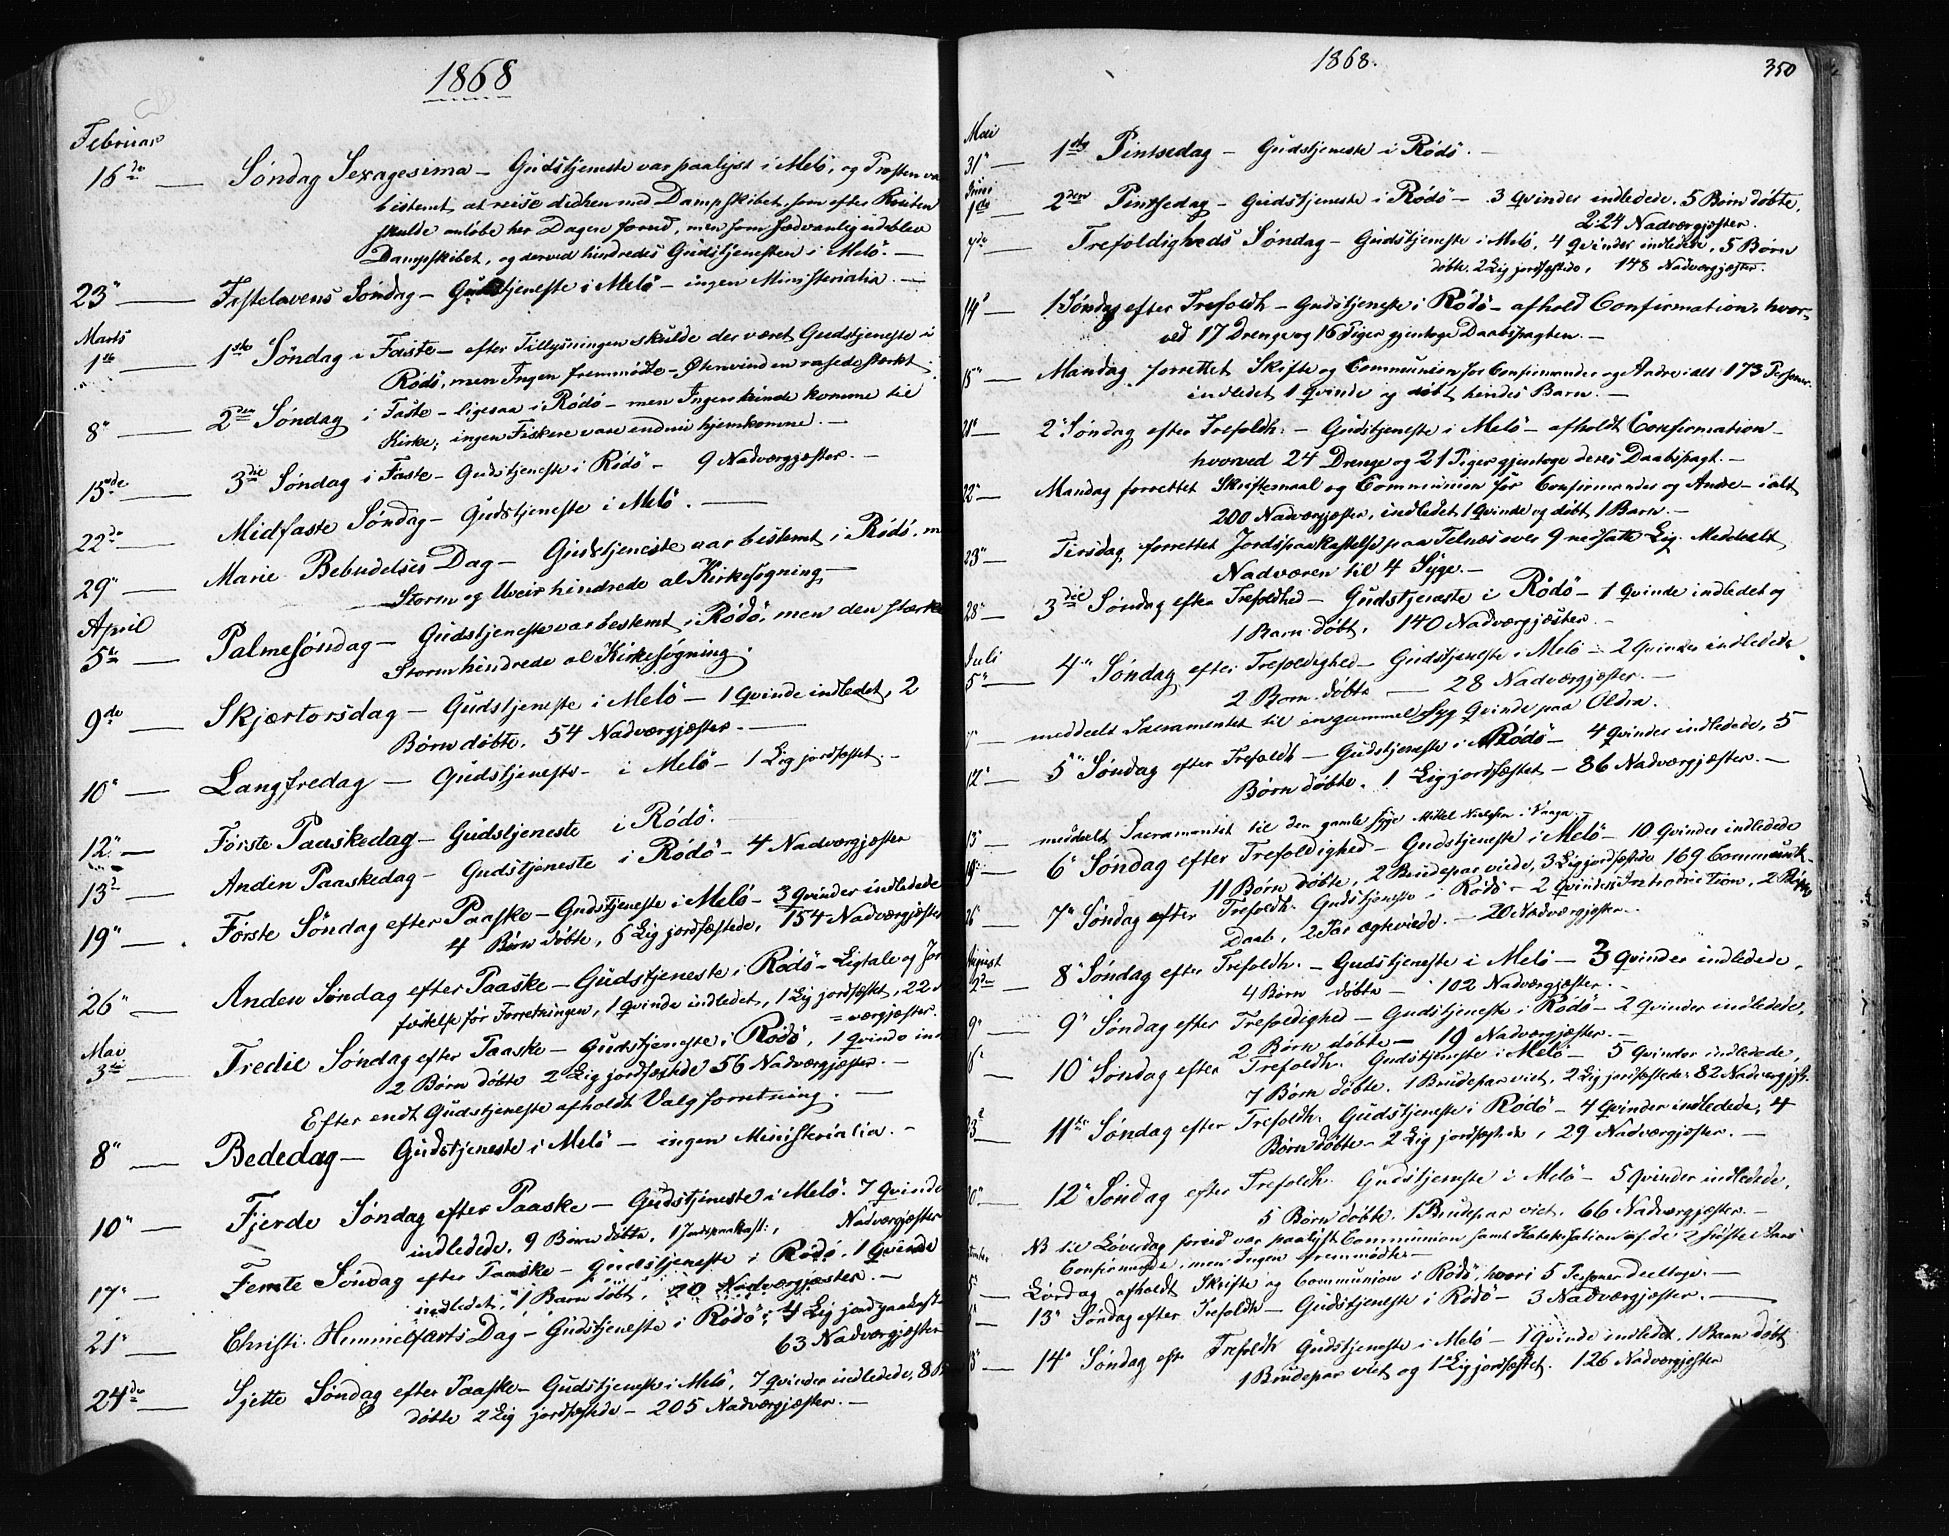 1868
Februar
16de — Søndag Sexagesima – Gudstjeneste var paalyst i Melö, og Presten va
bestemt at reise didhen med Dampskibet, som efter Routen
skulde anløbe her Dagen forud, men som sædvanlig udeblev
Dampskibet, og derved hindredes Gudstjenesten i Melö. —
23" — Fastelavens Søndag – Gudstjeneste i Melö – ingen Ministerialia. —
Marts
1ste — 1ste Søndag i Faste – efter Tillysningen skulde der været Gudstjeneste i
Rödö, men Ingen fremmødte – Østenvinden rasede stærkt.
8" — 2den Søndag i Faste – ligesaa i Rödö – men Ingen kunde komme til
Kirke, ingen Fiskere vare endnu hjemkomne. —
15de — 3die Søndag i Faste – Gudstjeneste i Rödö – 9 Nadværgjæster. —
22de — Midfaste Søndag – Gudstjeneste i Melö. —
29" — Marie Bebudelses Dag – Gudstjeneste var bestemt i Rödö, m
Storm og Uveir hindrede al Kirkesøgning —
April
5te — Palmesøndag – Gudstjeneste var bestemt i Rödö, men den stærke
Storm hindrede al Kirkesøgning.
9de — Skjærtorsdag – Gudstjeneste i Melö – 1 Qvinde indledet, 2
Børn døbte, 54 Nadværgjæster. —
10" — Langfredag – Gudstjeneste – i Melö – 1 Lig jordfæstet. –
12" — Første Paaskedag – Gudstjeneste i Rödö. —
13d — Anden Paaskedag – Gudstjeneste i Rödö – 4 Nadværgjæster
19" — Første Søndag efter Paaske – Gudstjeneste i Melö – 3 Qvinder indledede
4 Børn døbte, 6 Lig jordfæstede, 154 Nadværgjæster
26" — Anden Søndag efter Paaske – Gudstjeneste i Rödö – Ligtale og Jor
fæstelse før Forretningen, 1 Qvinde indledet, 1 Lig jordfæstet, 22
= værgjæster.
Mai
3die — Tredie Søndag efter Paaske – Gudstjeneste i Rödö, 1 Qvinde in
2 Børn døbte 2 Lig jordfæstede 56 Nadværgjæster. —
Efter endt Gudstjeneste afholdt Valgforretning. —
8" — Bededag – Gudstjeneste i Melö – ingen Ministerialia. –
10" — Fjerde Søndag efter Paaske – Gudstjeneste i Melö. 7 Qvinde
indledede, 9 Børn døbte, 1 Jordpaakast:, Nadværgjæster
17" — Femte Søndag efter Paaske – Gudstjeneste i Rödö. 1 Qvinde
indledet, 1 Barn döbt, 20 Nadværgjæster. —
21" — Christi Himmelfarts Dag – Gudstjeneste i Rödö, 4 Lig jordpaakast
63 Nadværgjæster
24de — Sjette Søndag efter Paaske – Gudstjeneste i Melö, 7 Qvinder indledede, 8 B
døbte 2 Lig jordfæstede – 205 Nadværgjæster. —
1868.
350
Mai
31" — 1ste Pintsedag – Gudstjeneste i Rödö. —
Juni
1ste — 2den Pintsedag – Gudstjeneste i Rödö – 3 Qvinder indledede. 5 Børn døbte,
224 Nadværgjæster.
7de — Trefoldigheds Søndag – Gudstjeneste i Melö, 4 Qvinder indledede, 5 Børn
døbte. 2 Lig jordfæstede, 148 Nadværgjæster.
14" — 1 Søndag efter Trefoldh – Gudstjeneste i Rödö – afhold Confirmation, hvor-
ved 17 Drenge og 16 Piger gjentoge Daabspagten. —
15" — Mandag forrettet Skrifte og Communion for Confirmander og Andre i alt 173 Personer.
indledet 1 Qvinde og døbt hendes Barn. —
21" — 2" Søndag efter Trefoldh. – Gudstjeneste i Melö – afholdt Confirmation –
hvorved 24 Drenge og 21 Piger gjentoge deres Daabspagt. —
22" — Mandag forrettet Skriftemaal og Communion for Confirmander og Andre – ialt
200 Nadværgjæster, indledet 1 Qvinde og döbt 1 Barn. —
23" — Tirsdag forrettet Jordspaakastelse paa Telnæs over 9 nedsatte Lig. Meddeelt
Nadværen til 4 Syge. —
28" — 3die Søndag efter Trefoldhed – Gudstjeneste i Rödö – 1 Qvinde indledet og
1 Barn døbt, 140 Nadværgjæster. –
Juli
5" — 4" Søndag efter Trefoldighed – Gudstjeneste i Melö – 2 Qvinder indledede
2 Børn döbte — 28 Nadværgjæster. —
— meddeelt Sacramentet til en gammel syg Qvinde paa Oldra.
12" — 5" Søndag efter Trefoldh – Gudstjeneste i Rödö – 4 Qvinder indledede, 5
Børn døbte. 1 Lig jordfæstet – 86 Nadværgjæster. —
13" — meddeelt Sacramentet til den gamle syge Mikel Nielsen i Vaaga.
19" — 6" Søndag efter Trefoldighed – Gudstjeneste i Melö – 10 Qvinder indledede
11 Børn døbte, 2 Brudepar viede, 3 Lig jordfæstede 169 Communik-
26" — 7" Søndag efter Trefoldh. Gudstjeneste i Rödö – 2 Qvinders Introduction, 2 Børns
Daab, 2 Par ægteviede. – 20 Nadværgjæster. –
August
2den — 8" Søndag efter Trefoldh. – Gudstjeneste i Melö – 3 Qvinder indledede,
4 Børn døbte – 102 Nadværgjæster. –
9" — 9" Søndag efter Trefoldighed – Gudstjeneste i Rödö – 2 Qvinder indledede,
2 Børn døbte — 19 Nadværgjæster. —
6" — 10" Søndag efter Trefoldh. Gudstjeneste i Melö – 5 Qvinder indledede,
7 Børn døbte. 1 Brudepar viet, 2 Lig jordfæstede. 82 Nadværgjst.
23d — 11te Søndag efter Trefoldh. Gudstjeneste i Rödö – 4 Qvinder indledede, 4
Børn døbte – 2 Lig jordfæstede, 29 Nadværgjæster. —
30" — 12" Søndag efter Trefoldh. Gudstjeneste i Melö – 5 Qvinder indledede,
5 Børn døbte. 1 Brudepar viet. 66 Nadværgjæster. —
NB til Løverdag forud var paalyst Communion samt Katekisation af de 2 sidste Aars
Confirmerede, men Ingen fremmødte —
5" — Lørdag afholdt Skrifte og Communion i Rödö, hvori 5 Personer deeltoge. —
— 13" Søndag efter Trefoldh – Gudstjeneste i Rödö – 3 Nadværgjæster. —
13" — 14" Søndag eft. Trefoldh Gudstjeneste i Melö – 1 Qvinde indledet. 1 Barn döbt
1 Brudepar viet og 1 Lig jordfæstet. 126 Nadværgjæster